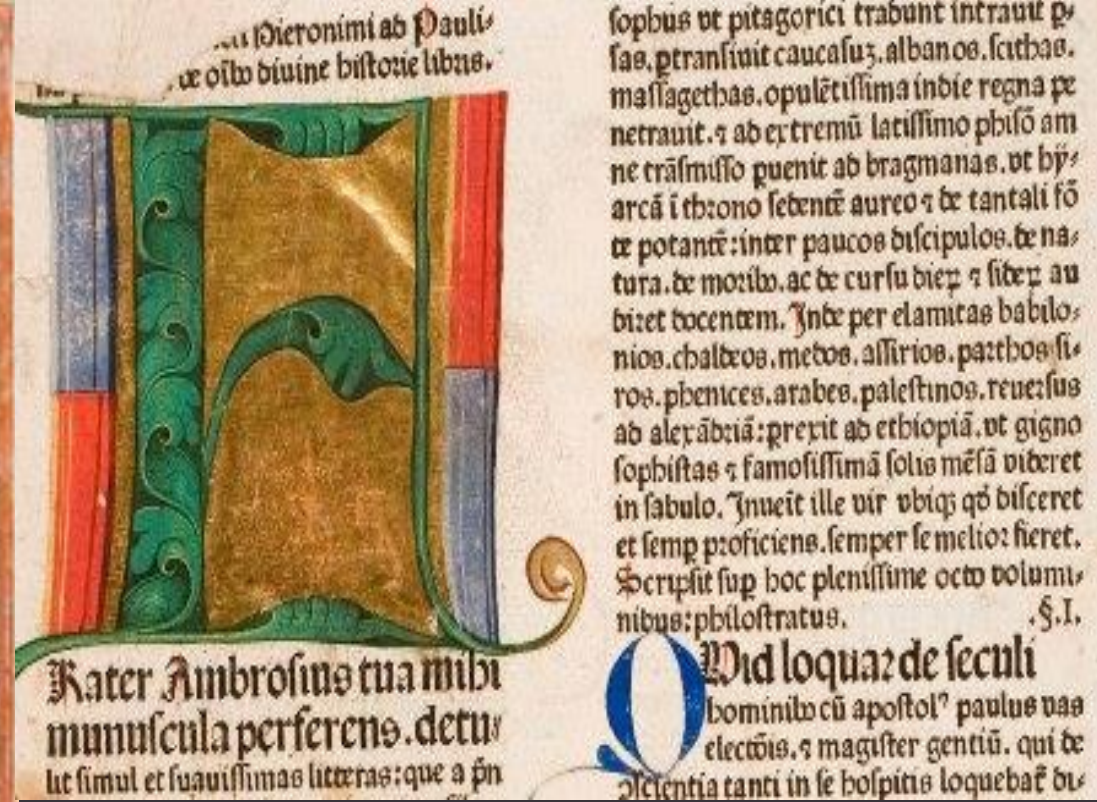 Hieronimi ad Pauli⸗
de oĩbꝰ diuine historie libris.
F
Rater Ambrosius tua mihi
munuscula perferens. detu⸗
lit simul et suauissimas litteras: que a p̃n
sophus vt pitagorici tradunt intrauit ꝑ⸗
sas. ꝑtransiuit caucasuȝ. albanos. scithas.
massagethas. opulẽtissima indie regna pe
netrauit. ⁊ ad extremũ latissimo phisõ am
ne trãsmisso ꝑuenit ad bragmanas. vt hÿ⸗
arcã ĩ throno sedentẽ aureo ⁊ de tantali fõ
te potantẽ: inter paucos discipulos. de na⸗
tura. de moribꝰ. ac de cursu dieꝝ ⁊ sideꝝ au
diret docentem. Inde per elamitas babilo⸗
nios. chaldeos. medos. assirios. parthos si⸗
ros. phenices. arabes. palestinos. reuersus
ad alexãdriã: prexit ad ethiopiã. vt gigno
sophistas ⁊ famosissimã solis mẽsã videret
in sabulo. Inueĩt ille vir vbiqꝫ qd̃ disceret
et semꝑ proficiens. semper se melior fieret.
Scripsit suꝑ hoc plenissime octo volumi⸗
nibus: philostratus. .§.I.
QVid loquar de seculi
hominibꝰ cũ apostolꝰ paulus vas
electõis. ⁊ magister gentiũ. qui de
ↄscientia tanti in se hospitis loquebat̃ di⸗